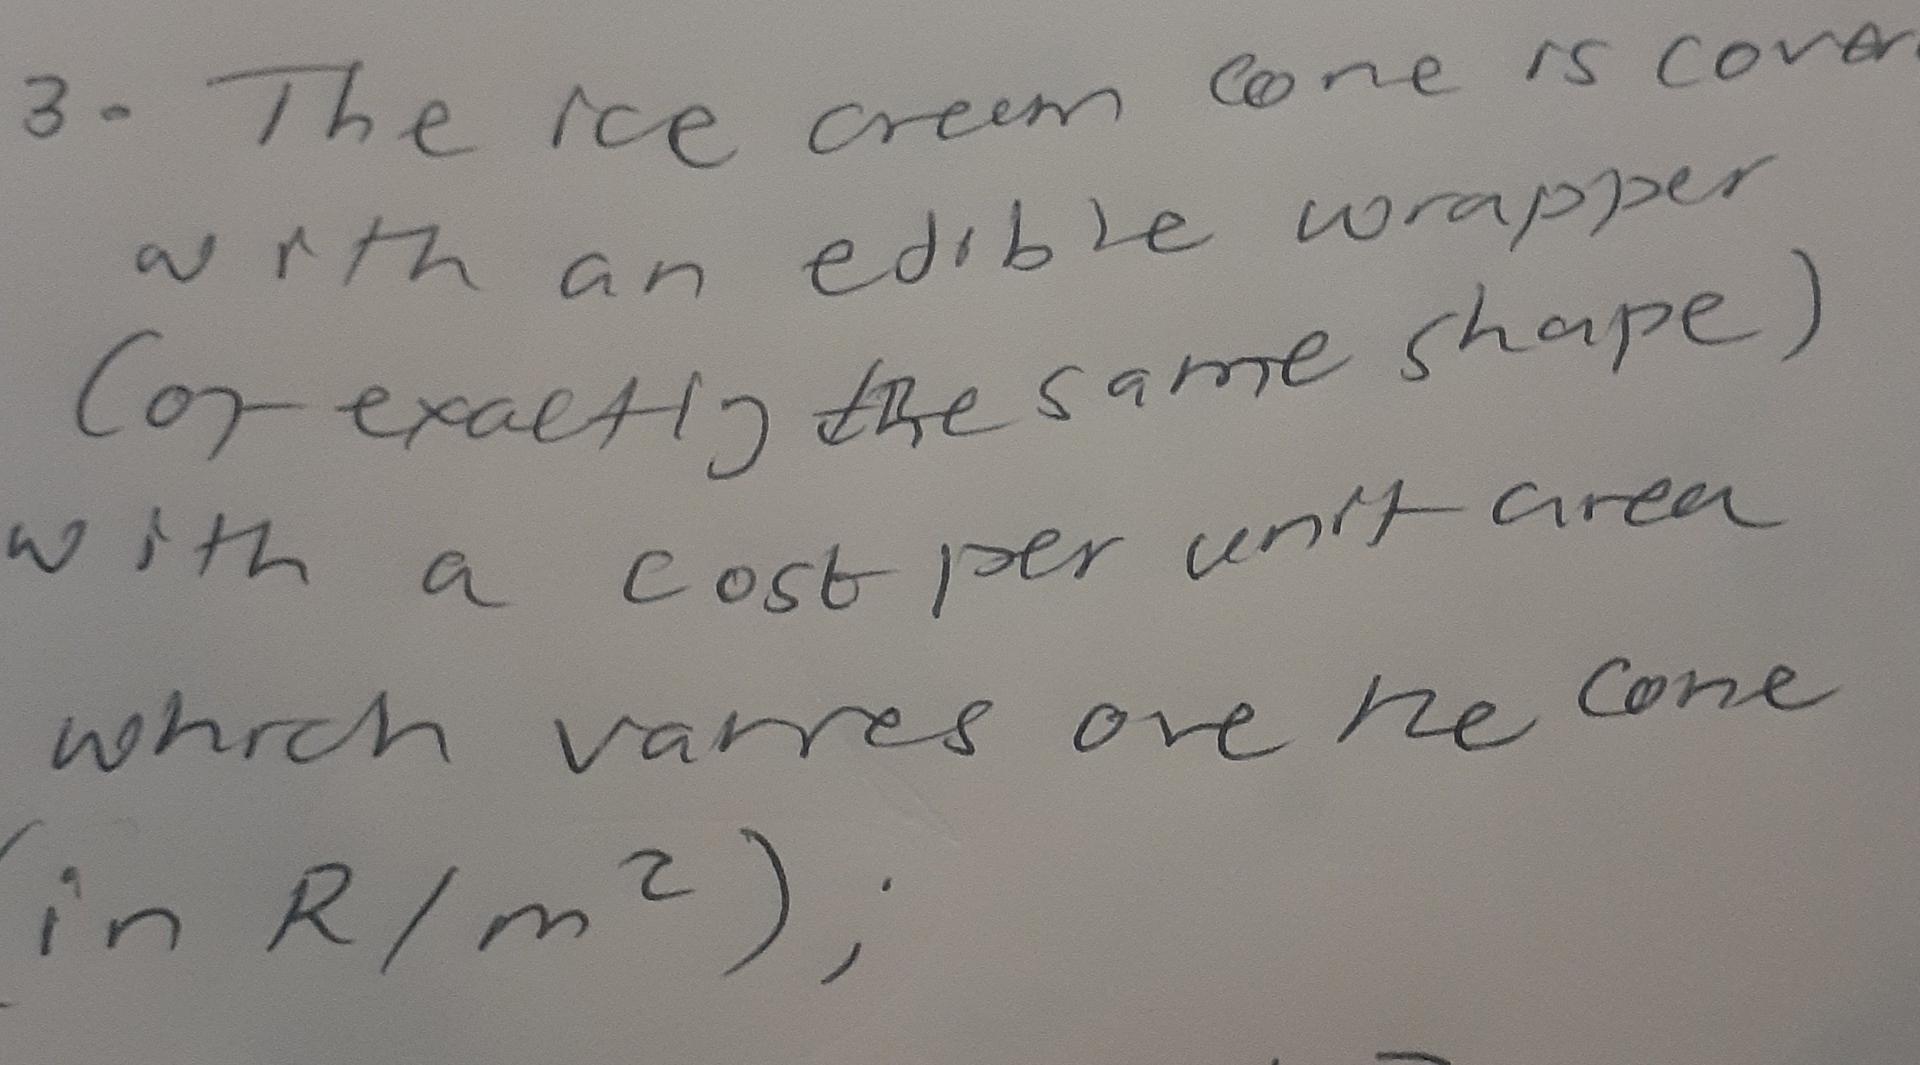 3. The ice cream cone is cover
with an edible wrapper
(of exactly the same shape)
with a cost per unit area
which varies ove he cone
(in R/m²);